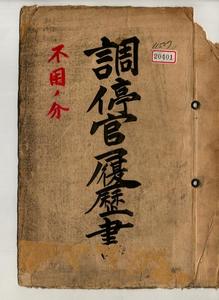 調停官履歴書
不用ノ分
20401